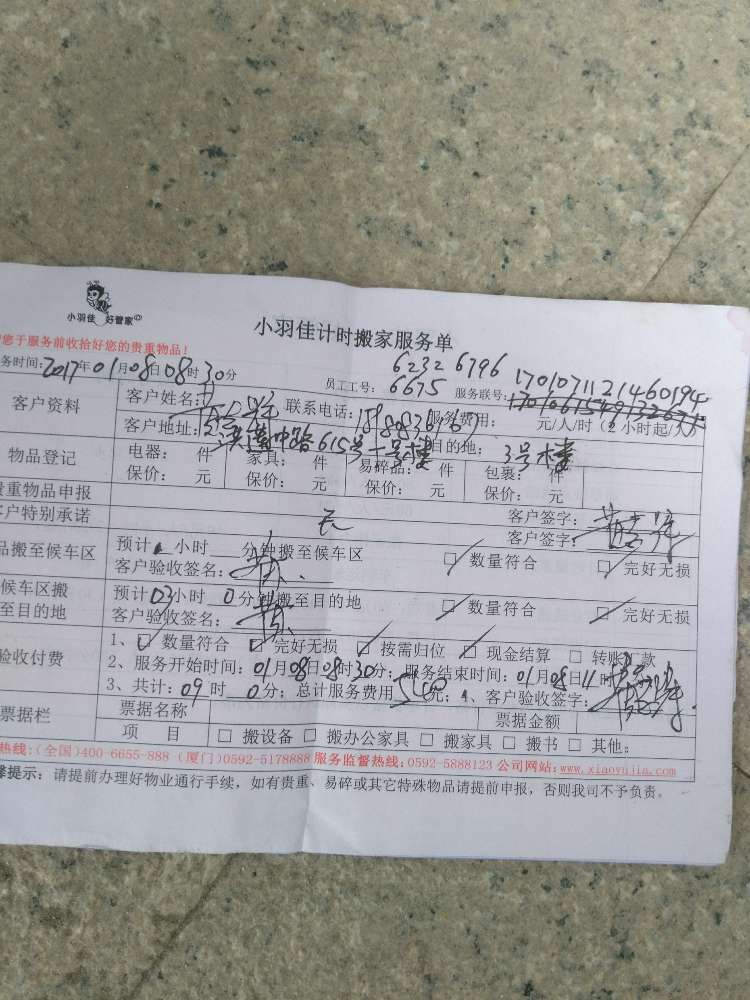 小羽佳 好管家
小羽佳计时搬家服务单
您于服务前收拾好您的贵重物品!
务时间:2017年01月08日08时30分
员工工号: 6232 6796 6675
服务联号: 17010711214601​94
客户资料
客户姓名: 联系电话: 服务费用: 元/人/时(2小时起/人)
客户地址: 中路615号一号楼 目的地: 3号楼
物品登记
电器: 件 家具: 件 易碎品: 件 包裹: 件
保价: 元 保价: 元 保价: 元 保价: 元
贵重物品申报
客户签字:
客户特别承诺 无
客户签字:
品搬至候车区
预计 小时 分钟搬至候车区 □ 数量符合 □ 完好无损
客户验收签名:
候车区搬至目的地
预计03小时 0分钟搬至目的地 □ 数量符合 □ 完好无损
客户验收签名:
验收付费
1、□ 数量符合 □ 完好无损 □ 按需归位 □ 现金结算 □ 转账汇款
2、服务开始时间:01月08日08时30分;服务结束时间:01月08日11时
3、共计:09时 0分;总计服务费用540元; 、客户验收签字:
票据栏
票据名称 票据金额
项 目 □ 搬设备 □ 搬办公家具 □ 搬家具 □ 搬书 □ 其他。
热线:(全国)400-6655-888 (厦门)0592-5178888 服务监督热线:0592-5888123 公司网站:www.xiaoyujia.com
馨提示:请提前办理好物业通行手续,如有贵重、易碎或其它特殊物品请提前申报,否则我司不予负责。